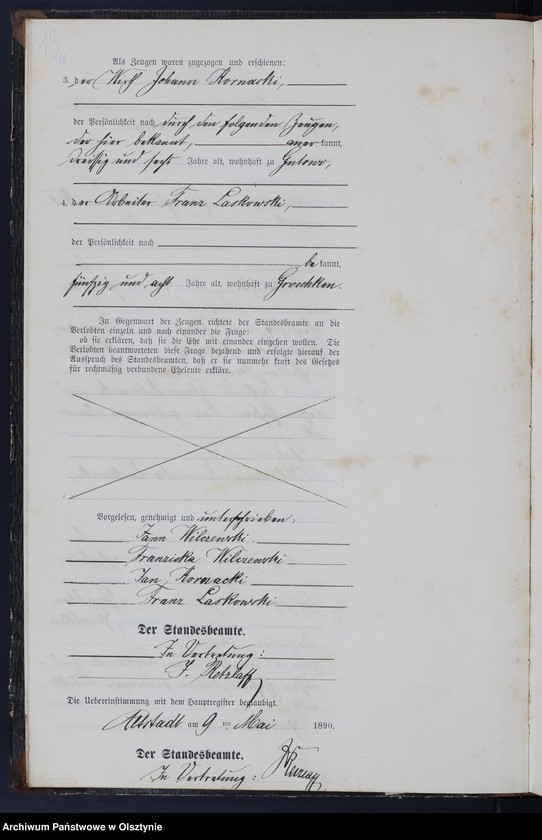 13
Als Zeugen waren zugezogen und erschienen:
3. der Wirth Johann Kornacki,
der Persönlichkeit nach durch den folgenden Zeugen,
der hier bekannt, aner kannt,
dreißig und sechs Jahre alt, wohnhaft zu Gutowo,
4. der Arbeiter Franz Laskowski,
der Persönlichkeit nach
be kannt,
fünfzig und acht Jahre alt, wohnhaft zu Groschken.
In Gegenwart der Zeugen richtete der Standesbeamte an die
Verlobten einzeln und nach einander die Frage:
ob sie erklären, daß sie die Ehe mit einander eingehen wollen. Die
Verlobten beantworteten diese Frage bejahend und erfolgte hierauf der
Ausspruch des Standesbeamten, daß er sie nunmehr kraft des Gesetzes
für rechtmäßig verbundene Eheleute erkläre.
Vorgelesen, genehmigt und unterschrieben:
Jann Wilczewski
Franziska Wilczewski
Jan Kornacki
Franz Laskowski
Der Standesbeamte.
In Vertretung:
F. Retzlaff
Die Uebereinstimmung mit dem Hauptregister beglaubigt.
Altstadt am 9 ten Mai 1890.
Der Standesbeamte.
In Vertretung:
Archiwum Państwowe w Olsztynie